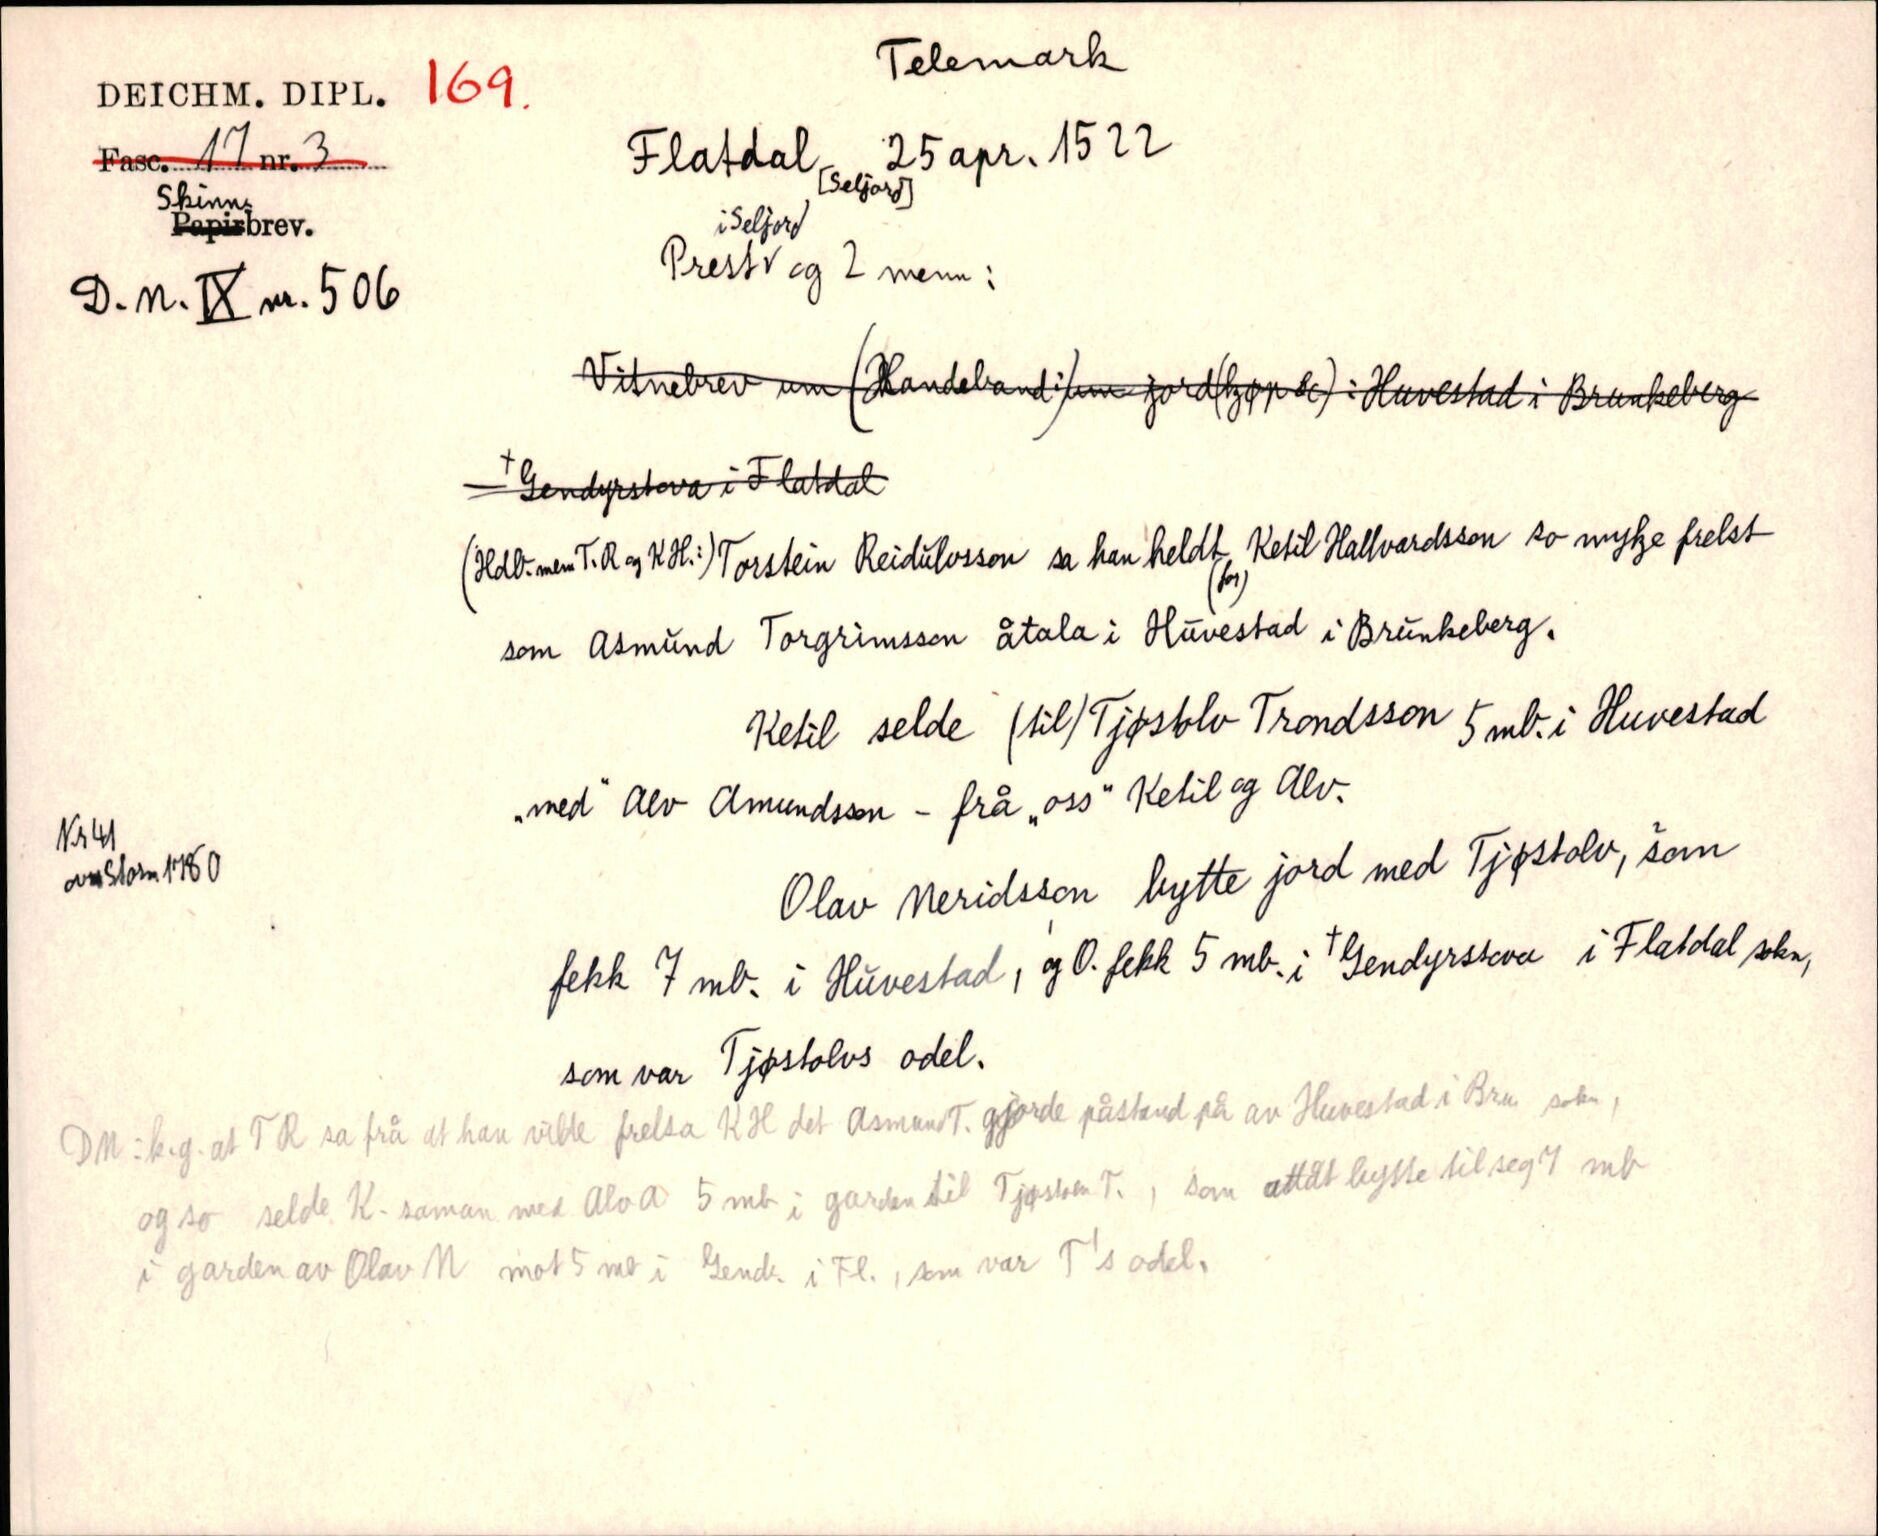 Telemark
DEICHM. DIPL. 169.
Fasc. 17 nr. 3
Flatdal 25 apr. 1522
[Seljord]
Skinn-
Papirbrev.
i Seljord
Prest og 2 menn:
D. N. IX nr. 506
Vitnebrev um (Handebandi) um jord(kjøp &c) i Huvestad i Brunkeberg
— †Gendyrstova i Flatdal
(Hdb. mem T.R og K H.:) Torstein Reidulvsson sa han heldt Ketil Hallvardsson so mykje frelst
(for)
som Asmund Torgrimsson åtala i Huvestad i Brunkeberg.
Ketil selde (til) Tjøstolv Trondsson 5 mb. i Huvestad
„med" Alv Amundsson - frå „oss" Ketil og Alv.
Nr 41
av Storm 1780
Olav Neridsson bytte jord med Tjøstolv, som
fekk 7 mb. i Huvestad, og O. fekk 5 mb. i †Gendyrstova i Flatdal sokn,
som var Tjøstolvs odel.
DN: k.g. at T R sa frå at han vilde frelsa K H det Asmund T. gjorde påstand på av Huvestad i Bru. sokn,
og so selde K. saman med Alv A 5 mb i garden til Tjøstolv T., som attåt bytte til seg 7 mb
i garden av Olav N mot 5 mb i Gend. i Fl., som var T's odel.